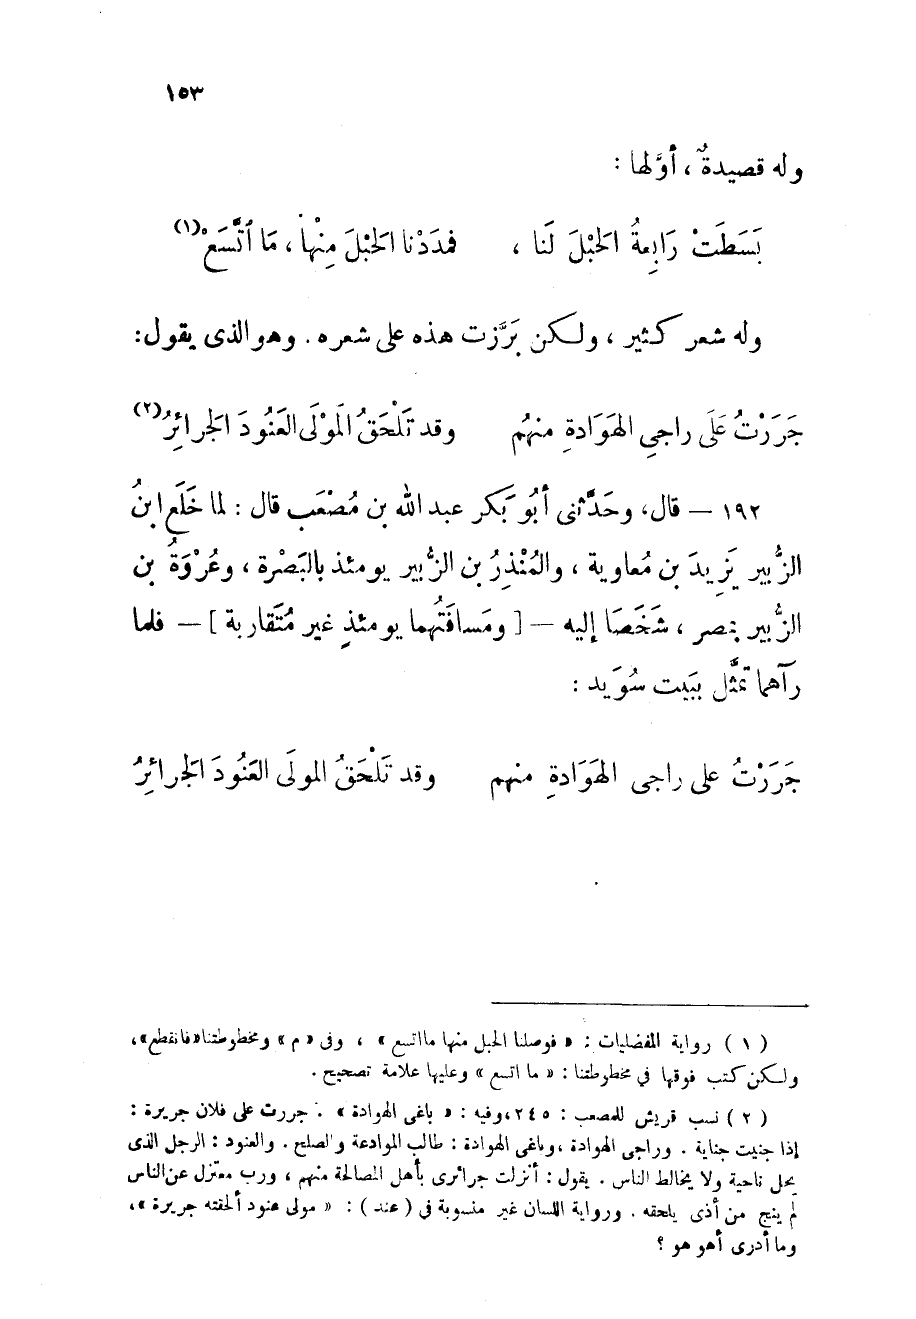 ١٥٣
وله قصيدةٌ ، أوَّلها :
بَسَطَتْ رَابِعةُ الحَبْلَ لَنا ، فمدَدْنا الحَبْلَ مِنْها ، مَا ٱتَّسَعْ(١)
وله شعر كثير ، ولكن بَرَّزت هذه على شعره . وهو الذى يقول :
جَرَرْتُ عَلَى راجِى الهَوَادةِ منهُم وقد تَلْحَقُ المَوْلَى العَنُودَ الجرائِرُ(٢)
١٩٢ — قال ، وحَدَّثنى أبُو بَكر عبد الله بن مُصْعَب قال : لما خَلَع ابنُ
الزُّبير يَزِيدَ بن مُعاوية ، والمُنْذِرُ بن الزُّبير يومئذ بالبَصْرة ، وعُرْوَةُ بن
الزُّبير بمصر ، شَخَصَا إليه — [ ومَسافَتُهما يومئذٍ غير مُتَقاربة ] — فلما
رآهما تمثَّل ببَيت سُوَيد :
جَرَرْتُ على راجى الهَوَادةِ منهم وقد تَلْحَقُ المولَى العَنُودَ الجرائِرُ
( ١ ) رواية المفضليات : « فوصلنا الحبل منها ما اتسع » ، وفى « م » ومخطوطتنا « فانقطع » ،
ولكن كتب فوقها فى مخطوطتنا : « ما اتسع » وعليها علامة تصحيح .
( ٢ ) نسب قريش للمصعب : ٢٤٥ ، وفيه : « باغى الهوادة » . جررت على فلان جريرة :
إذا جنيت جناية . وراجى الهوادة ، وباغى الهوادة : طالب الموادعة والصلح . والعنود : الرجل الذى
يحل ناحية ولا يخالط الناس . يقول : أنزلت جرائرى بأهل المصالحة منهم ، ورب معتزل عن الناس
لم ينج من أذى يلحقه . ورواية اللسان غير منسوبة فى ( عند ) : « مولى عنود ألحقته جريرة » ،
وما أدرى أهو هو ؟